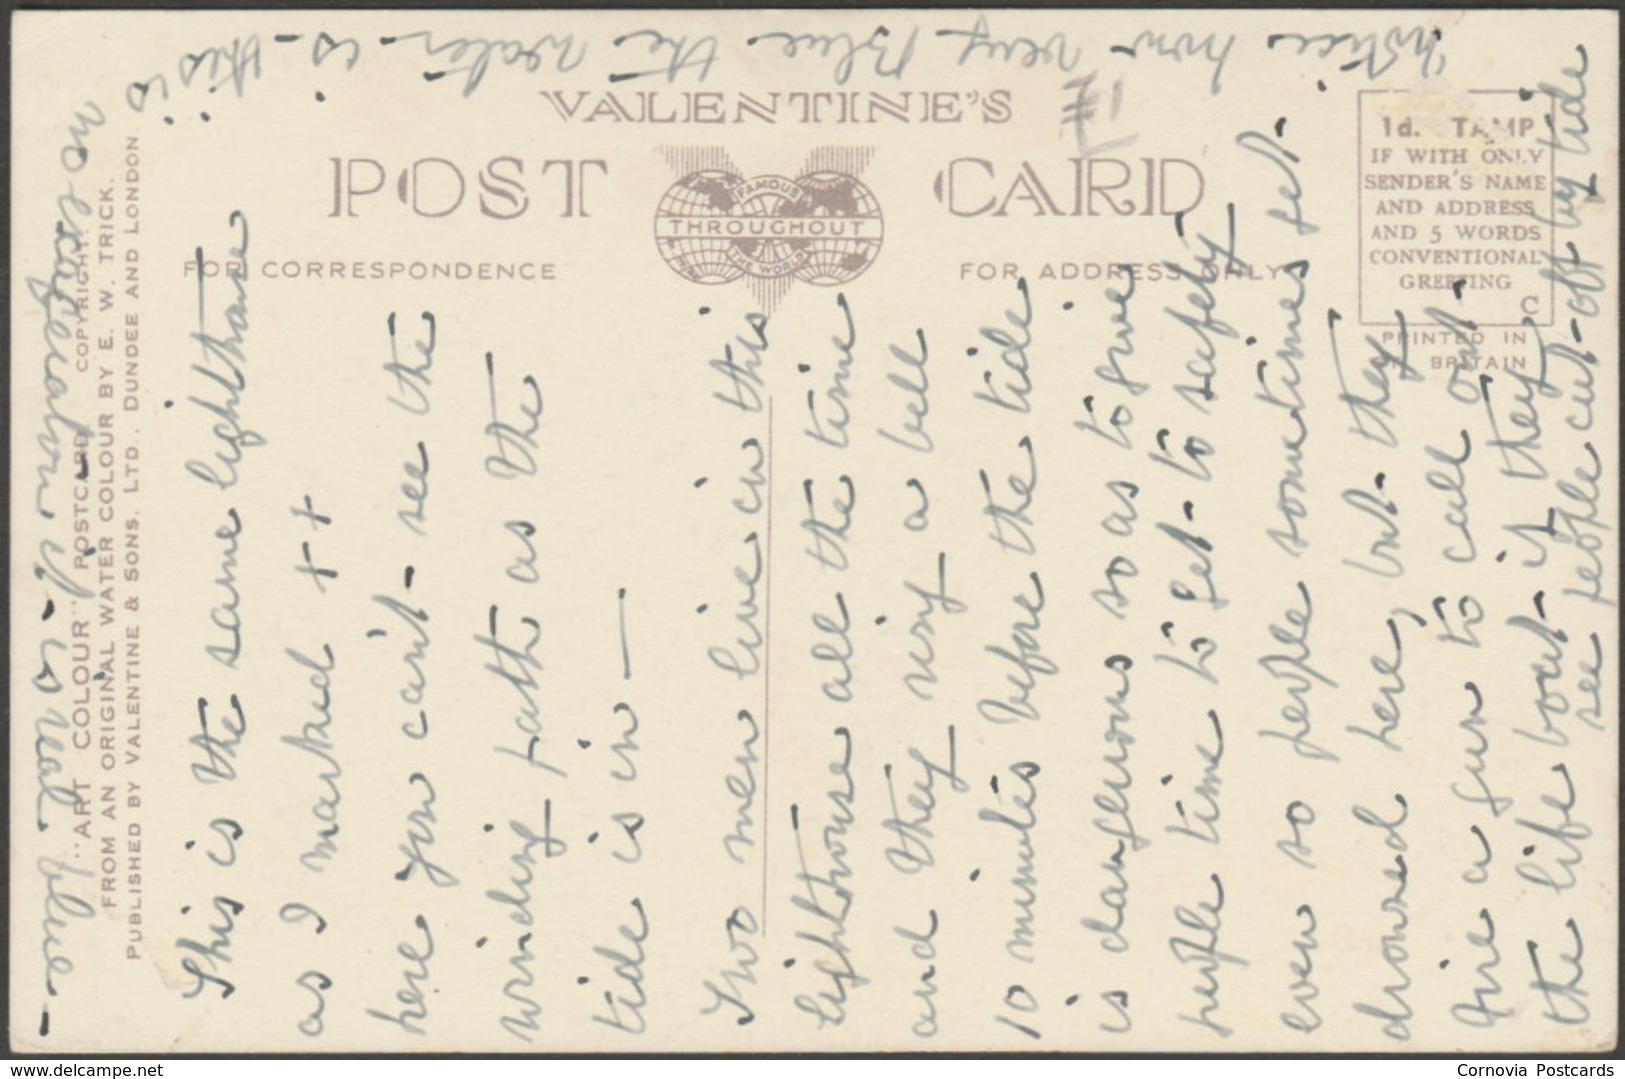 This is the same lighthouse
as I marked ++
here you can't- see the
winding path as the
tide is in —
Two men live in this
lighthouse all the time
and they ring a bell
10 minutes before the tide
is dangerous so as to give
people time to get- to safety
even so people sometimes get-
drowned here, but- they
fire a gun to call out-
the life boat- if they
see people cut-off by tide
Notice how very Blue the water is - this is
no exageration it- is real blue —
VALENTINE'S
POST CARD
FAMOUS
THROUGHOUT
THE WORLD
FOR CORRESPONDENCE
FOR ADDRESS ONLY
1d. TAMP
IF WITH ONLY
SENDER'S NAME
AND ADDRESS
AND 5 WORDS
CONVENTIONAL
GREETING
C
PRINTED IN
BRITAIN
"ART COLOUR" POSTCARD COPYRIGHT.
FROM AN ORIGINAL WATER COLOUR BY E. W. TRICK.
PUBLISHED BY VALENTINE & SONS, LTD., DUNDEE AND LONDON
www.delcampe.net
Cornovia Postcards